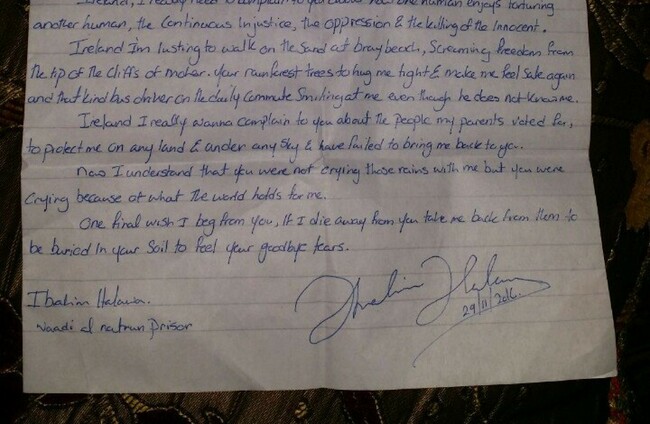 Ireland, I really need to complain to you about how one human enjoys torturing
another human, the Continuous injustice, the oppression & the killing of the innocent.
Ireland Im lusting to walk on the Sand at bray beach, Screaming freedom from
the tip of the Cliffs of moher. your rainforest trees to hug me tight & make me feel Safe again
and that kind bus driver on the daily Commute Smiling at me even though he does not know me.
Ireland I really wanna complain to you about the people my parents voted for,
to protect me on any land & under any Sky & have failed to bring me back to you.
Now I understand that you were not crying those rains with me but you were
Crying because of what the world holds for me.
One final wish I beg from you, If I die away from you take me back from them to
be buried in your Soil to feel your goodbye tears.
Ibrahim Halawa.
Waadi el natrun prison
29/11/2016.